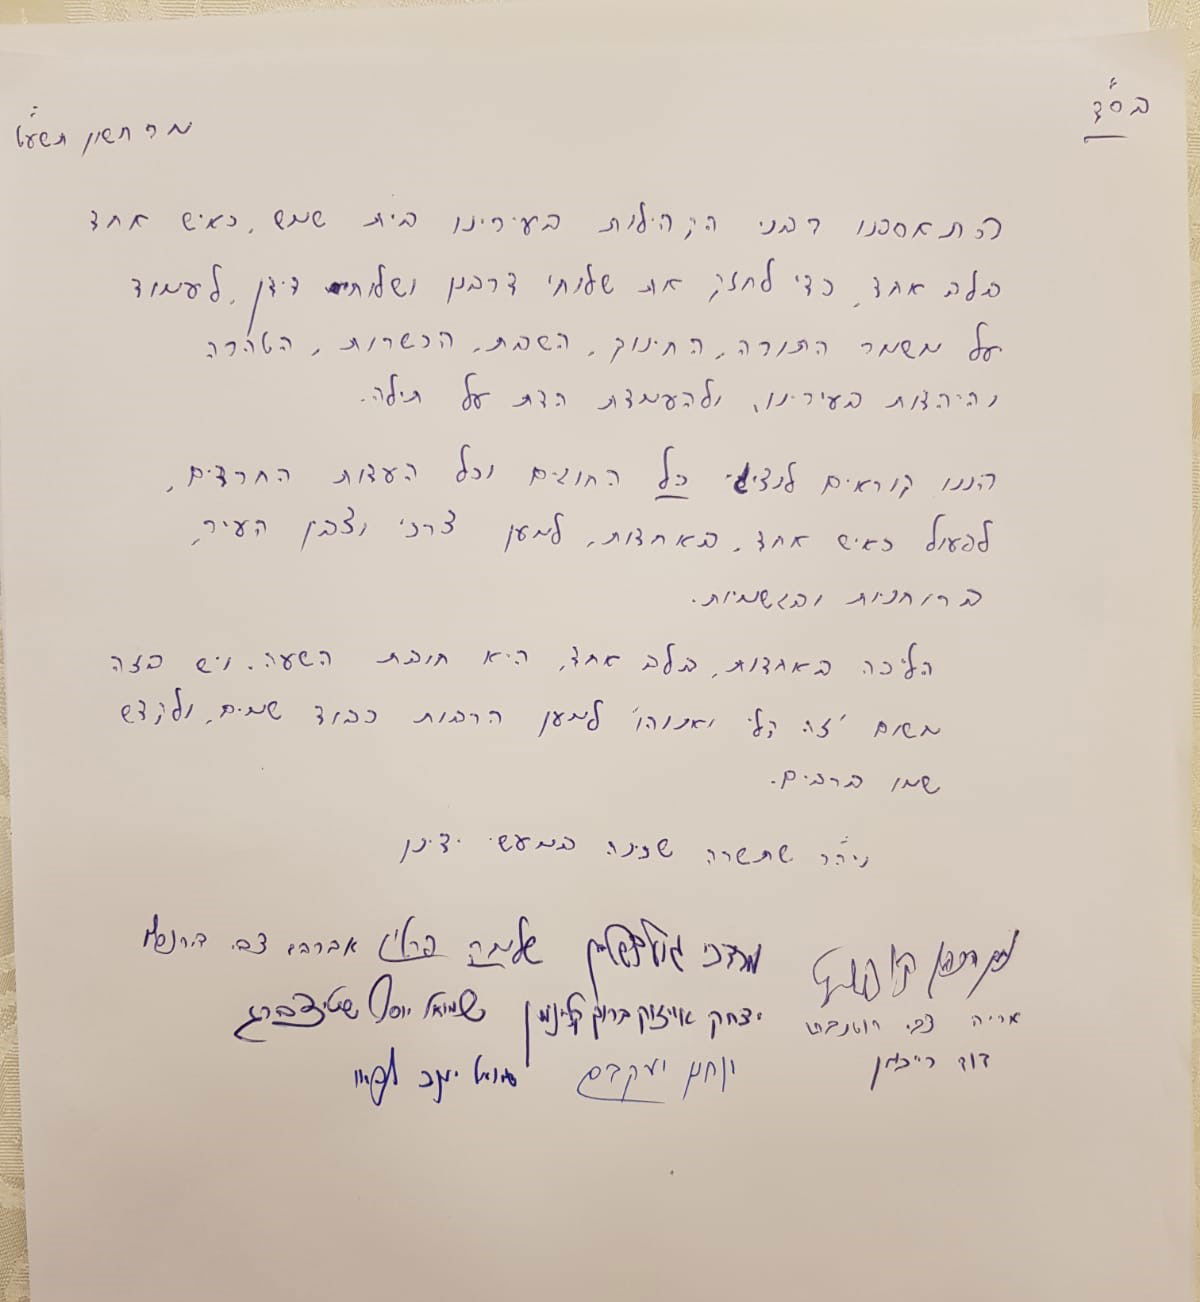 בס"ד
מר חשון תשע"ט
התאספנו רבני הקהילות בעירינו בית שמש, כאיש אחד
בלב אחד, כדי לחזק את שלוחי דרבנן ושלוחי דידן, לעמוד
על משמר התורה, החינוך, השבת, הכשרות, הטהרה
והיהדות בעירינו, ולהעמדת הדת על תילה.
הננו קוראים לנציגי כל החוגים וכל העדות החרדים,
לפעול כאיש אחד, באחדות, למען צרכי וצביון העיר,
ברוחניות ובגשמיות.
הליכה באחדות, בלב אחד, היא חובת השעה. ויש בזה
משום 'זה קלי ואנוהו' למען הרבות כבוד שמים, ולקדש
שמו ברבים.
ויה"ר שתשרה שכינה במעשי ידינו
מרדכי גולדשטיין שלמה פרלין אברהם צבי
אריה צבי רוטנברג יצחק אייזיק ברוך קלינמן שמואל יוסף שטיצברג
דוד רייכמן יונתן יעקבס שמואל יעקב